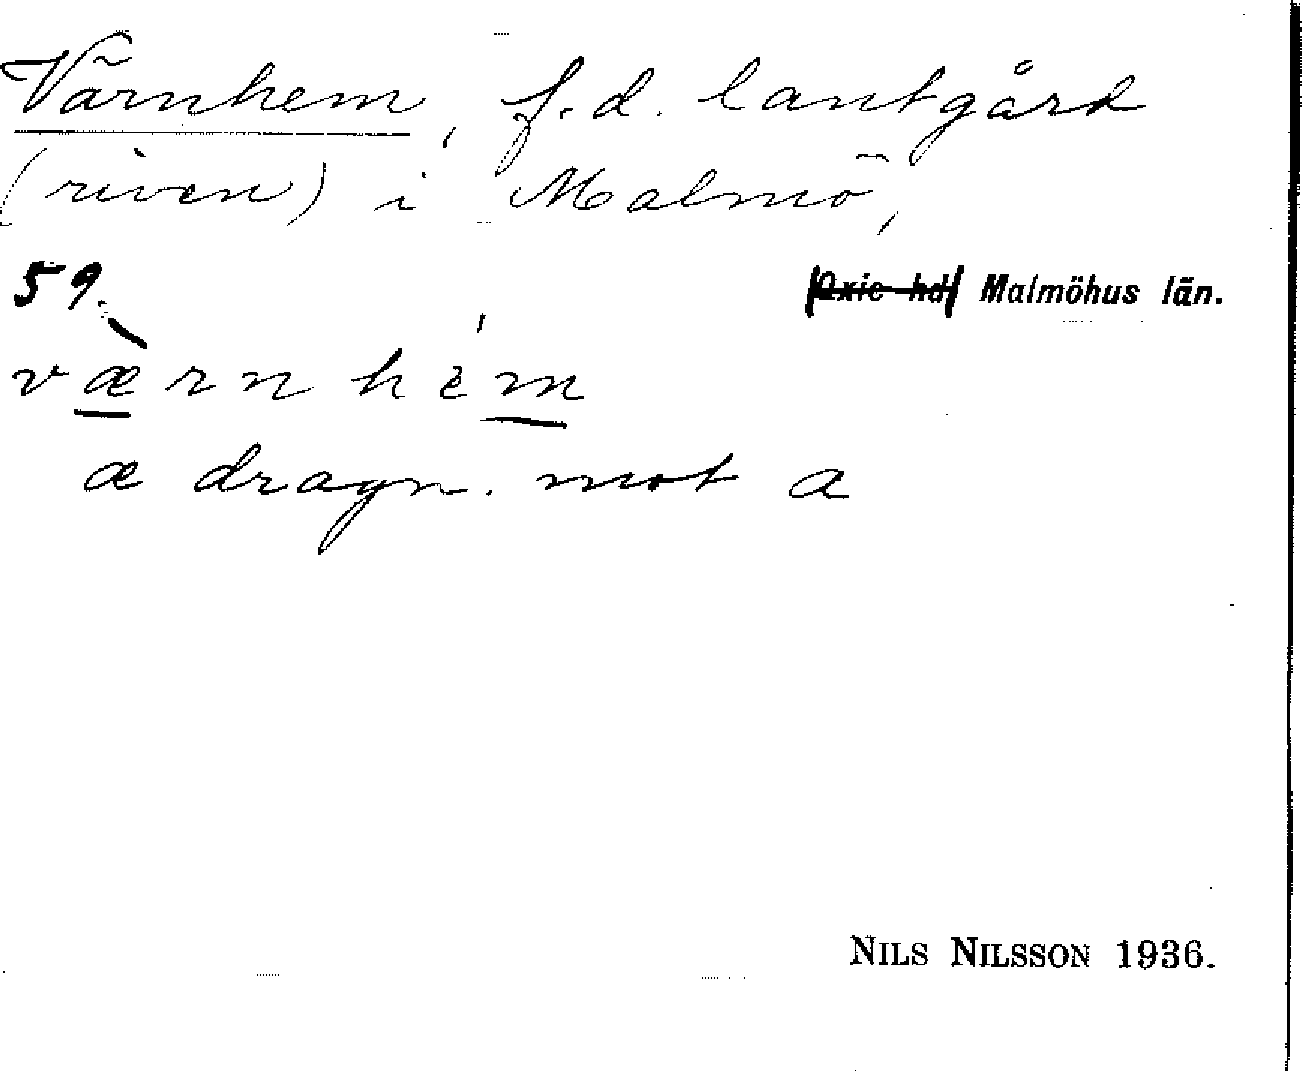 Värnhem, f.d. lantgård
(riven) i Malmö,
59. Oxie hd Malmöhus län.
værnhem
æ dragn. mot a
NILS NILSSON 1936.